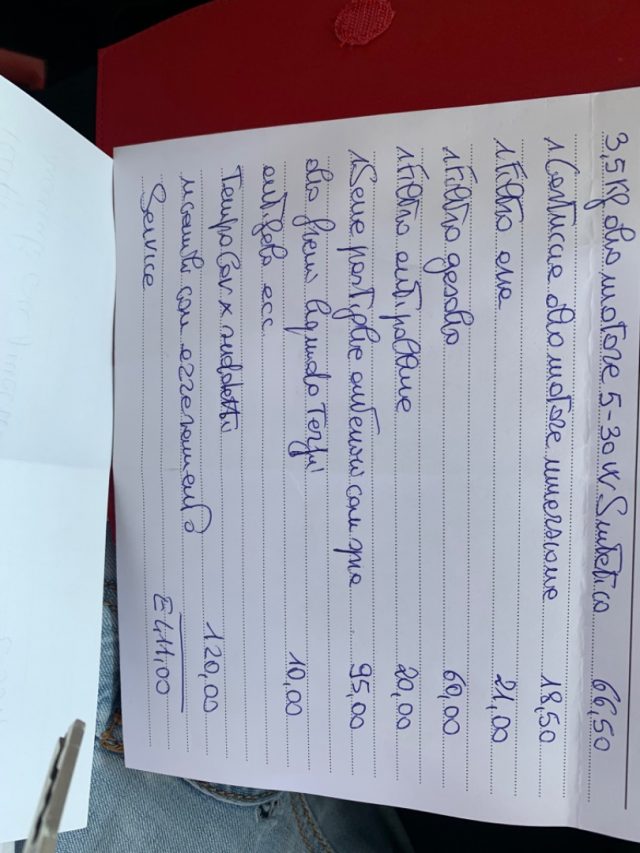 3,5 Kg olio motore 5-30 W Sintetico 66,50
1 Cartuccia olio motore immersione 18,50
1 Filtro aria 21,00
1 Filtro gasolio 60,00
1 Filtro antipolline 20,00
1 Serie pastiglie anteriori con spia 95,00
olio freni liquido Tergi
antigelo ecc 10,00
Tempo lav x suddetti
ricambi con azzeramento 120,00
Service
E 411,00